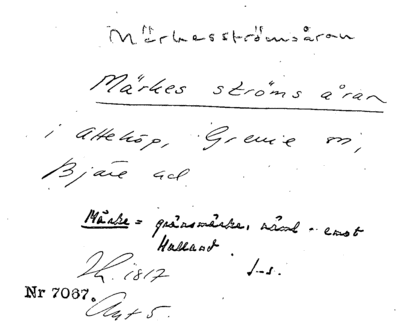 Märkesströmsåran
Märkes ströms åran
i Attekop, Grevie sn,
Bjäre hd
Märke = gränsmärke, näml. emot
Halland.
J-s.
1817
Nr 7067.